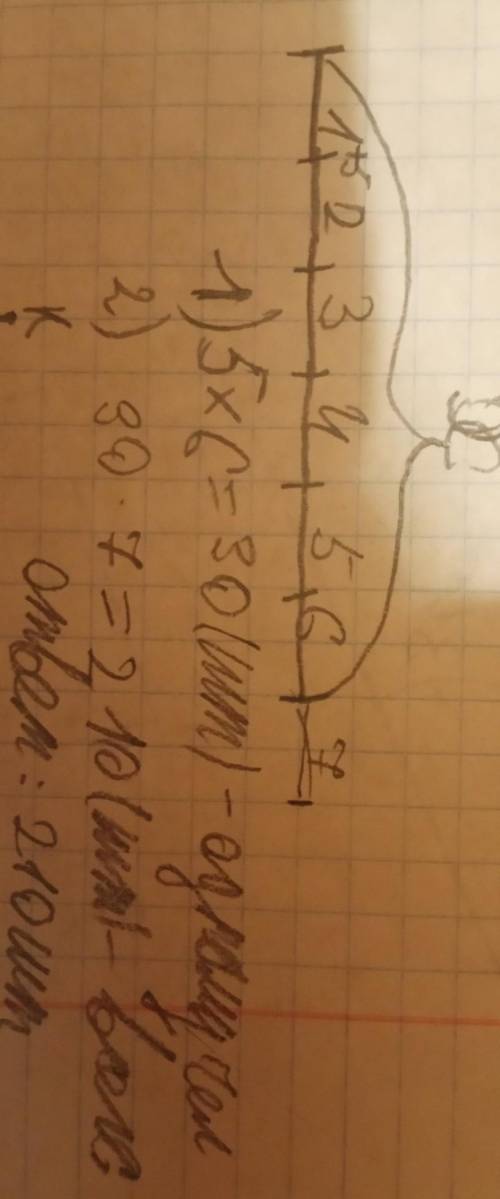 1 5 2 3 4 5 6 7
1) 5 × 6 = 30 (шт) -
2) 30 · 7 = 210 (шт) - всего
К
ответ: 210 шт